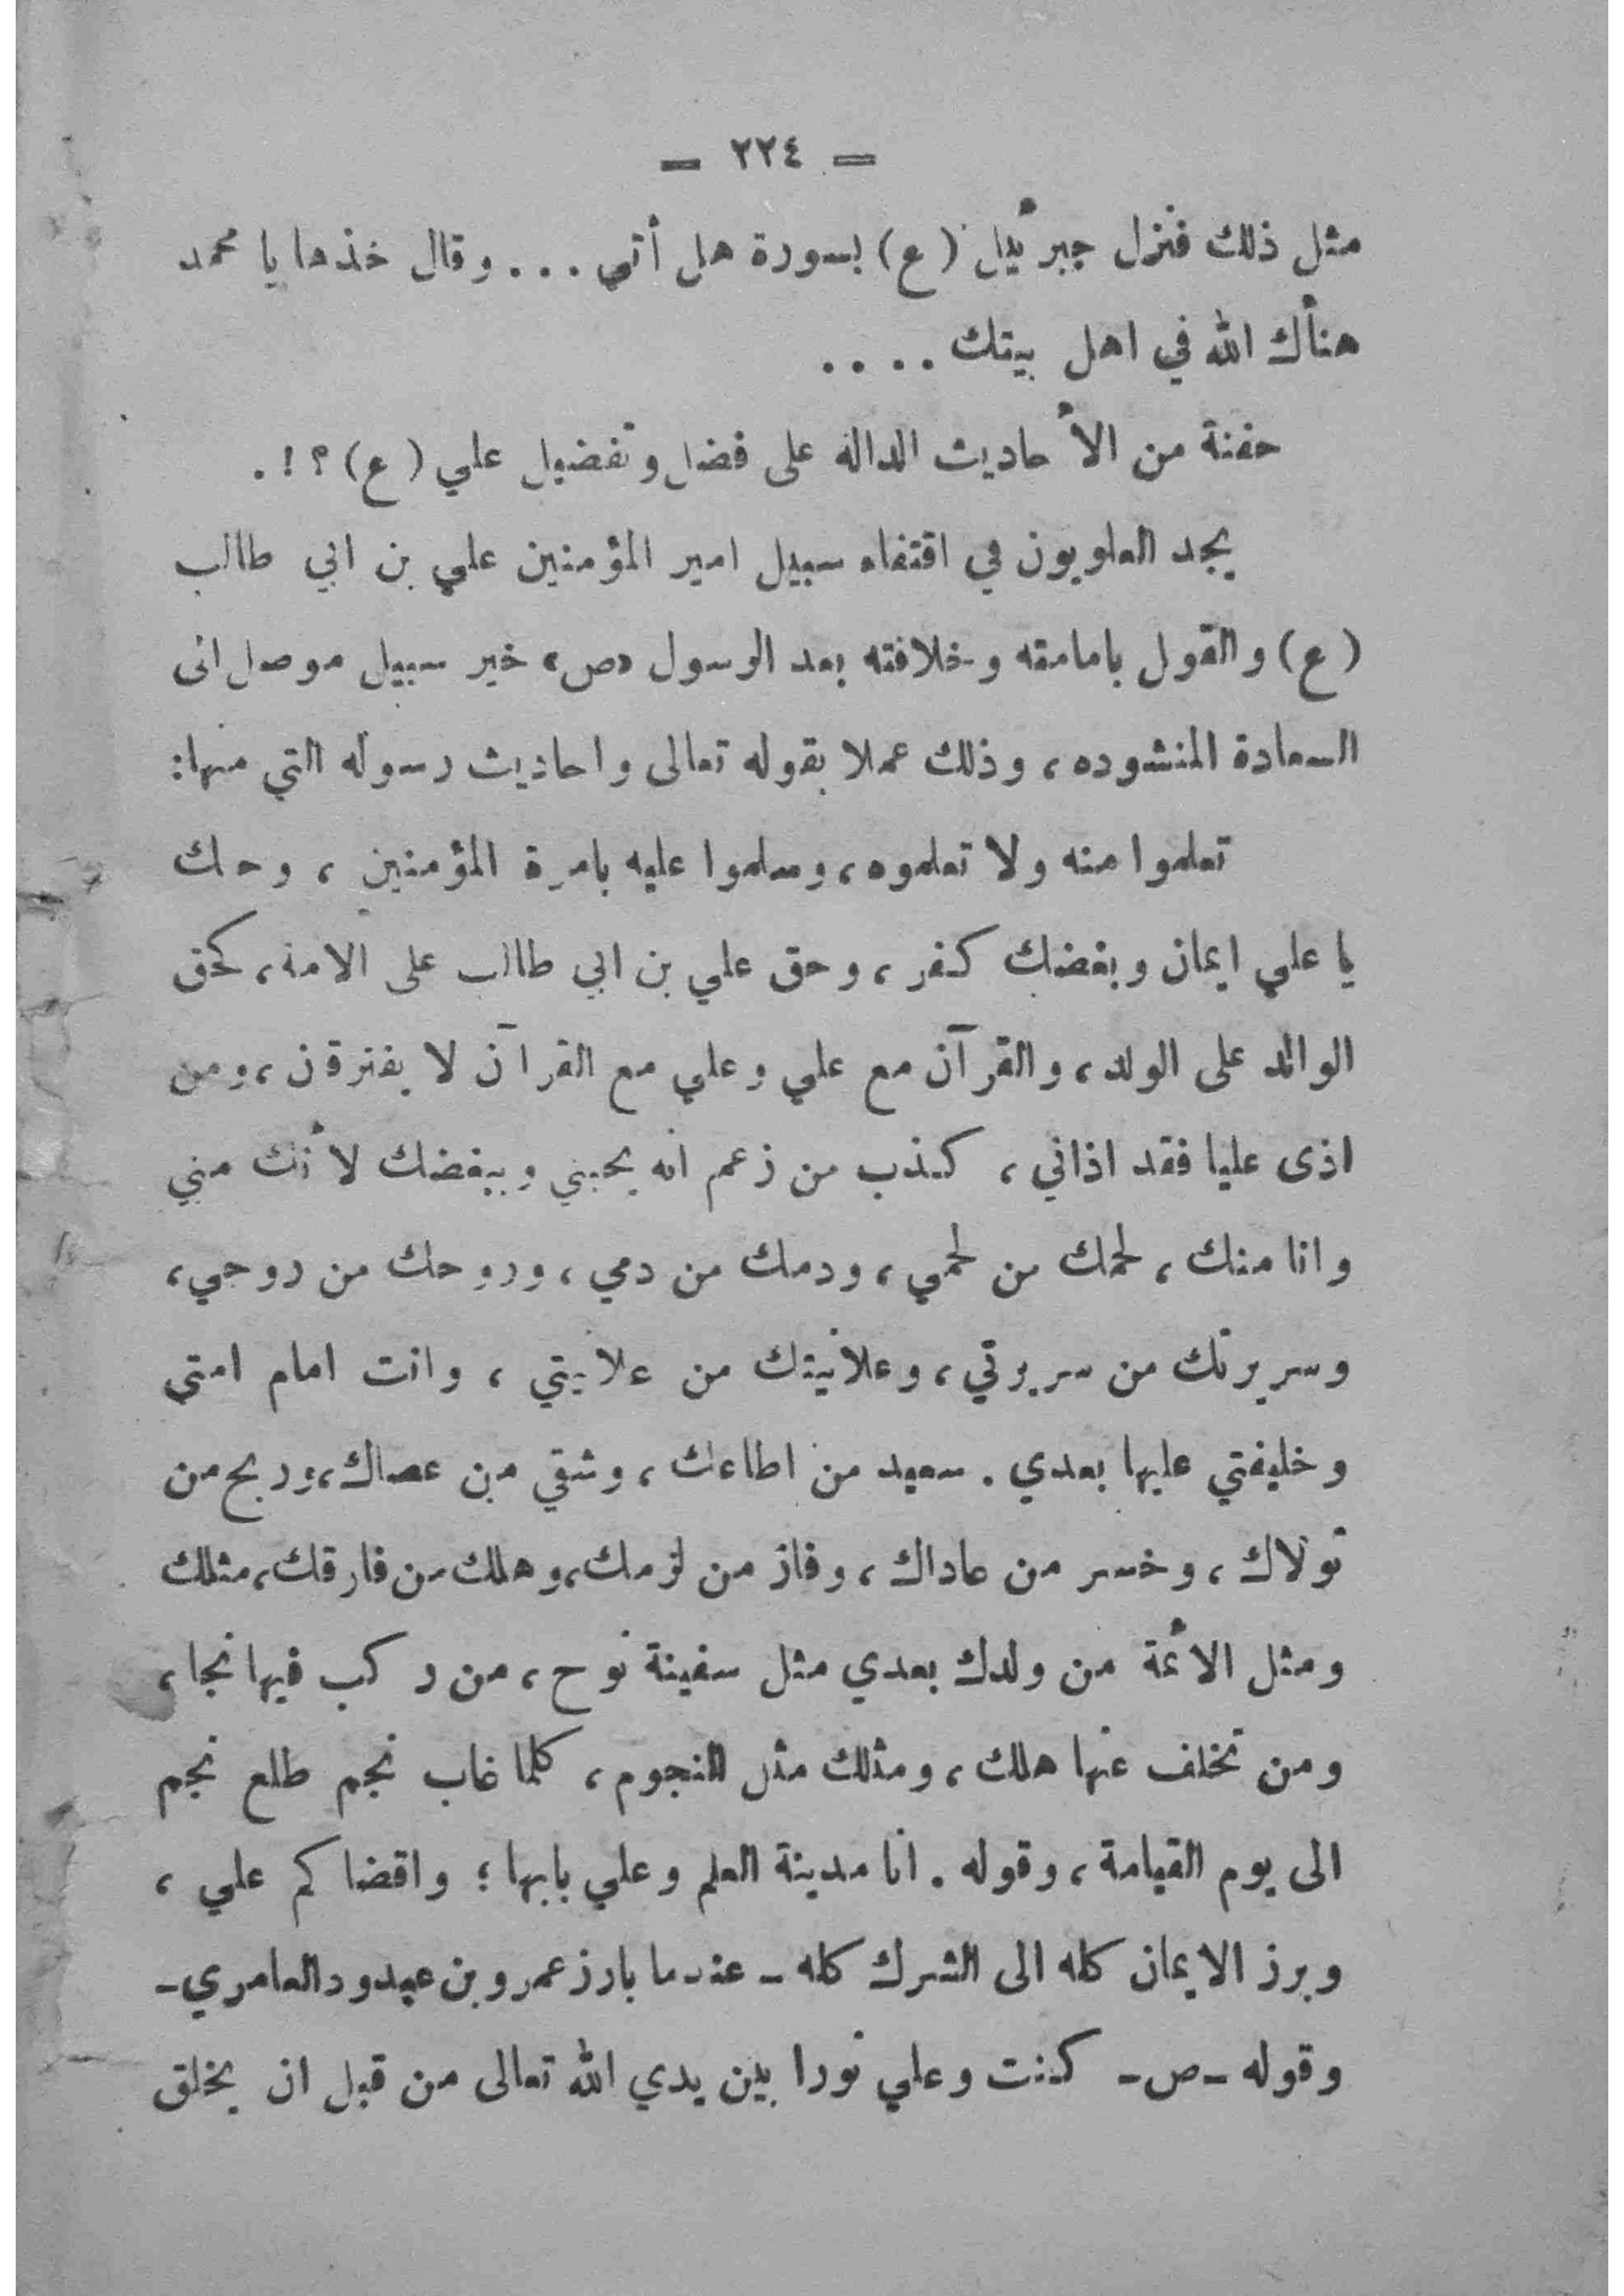 — ٢٢٤ —
مثل ذلك فنزل جبرئيل (ع) بسورة هل أتى . . . وقال خذها يا محمد
هنأك الله في اهل بيتك . . . .
حفنة من الأحاديث الداله على فضل وتفضيل علي (ع) ؟ ! .
يجد العلويون في اقتفاء سبيل امير المؤمنين علي بن ابي طالب
(ع) والقول بامامته وخلافته بعد الرسول «ص» خير سبيل موصل الى
السعادة المنشوده ، وذلك عملا بقوله تعالى واحاديث رسوله التي منها :
تعلموا منه ولا تعلموه ، وسلموا عليه بامرة المؤمنين ، وحبك
يا علي ايمان وبغضك كفر ، وحق علي بن ابي طالب على الامة ، كحق
الوالد على الولد ، والقرآن مع علي وعلي مع القرآن لا يفترقان ، ومن
اذى عليا فقد اذاني ، كذب من زعم انه يحبني ويبغضك لأنك مني
وانا منك ، لحمك من لحمي ، ودمك من دمي ، وروحك من روحي ،
وسريرتك من سريرتي ، وعلانيتك من علانيتي ، وانت امام امتي
وخليفتي عليها بعدي . سعيد من اطاعك ، وشقي من عصاك ، وربح من
تولاك ، وخسر من عاداك ، وفاز من لزمك ، وهلك من فارقك ، مثلك
ومثل الأئمة من ولدك بعدي مثل سفينة نوح ، من ركب فيها نجا ،
ومن تخلف عنها هلك ، ومثلك مثل النجوم ، كلما غاب نجم طلع نجم
الى يوم القيامة ، وقوله . انا مدينة العلم وعلي بابها ؛ واقضاكم علي ،
وبرز الايمان كله الى الشرك كله - عندما بارز عمرو بن عبدود العامري -
وقوله - ص - كنت وعلي نورا بين يدي الله تعالى من قبل ان يخلق